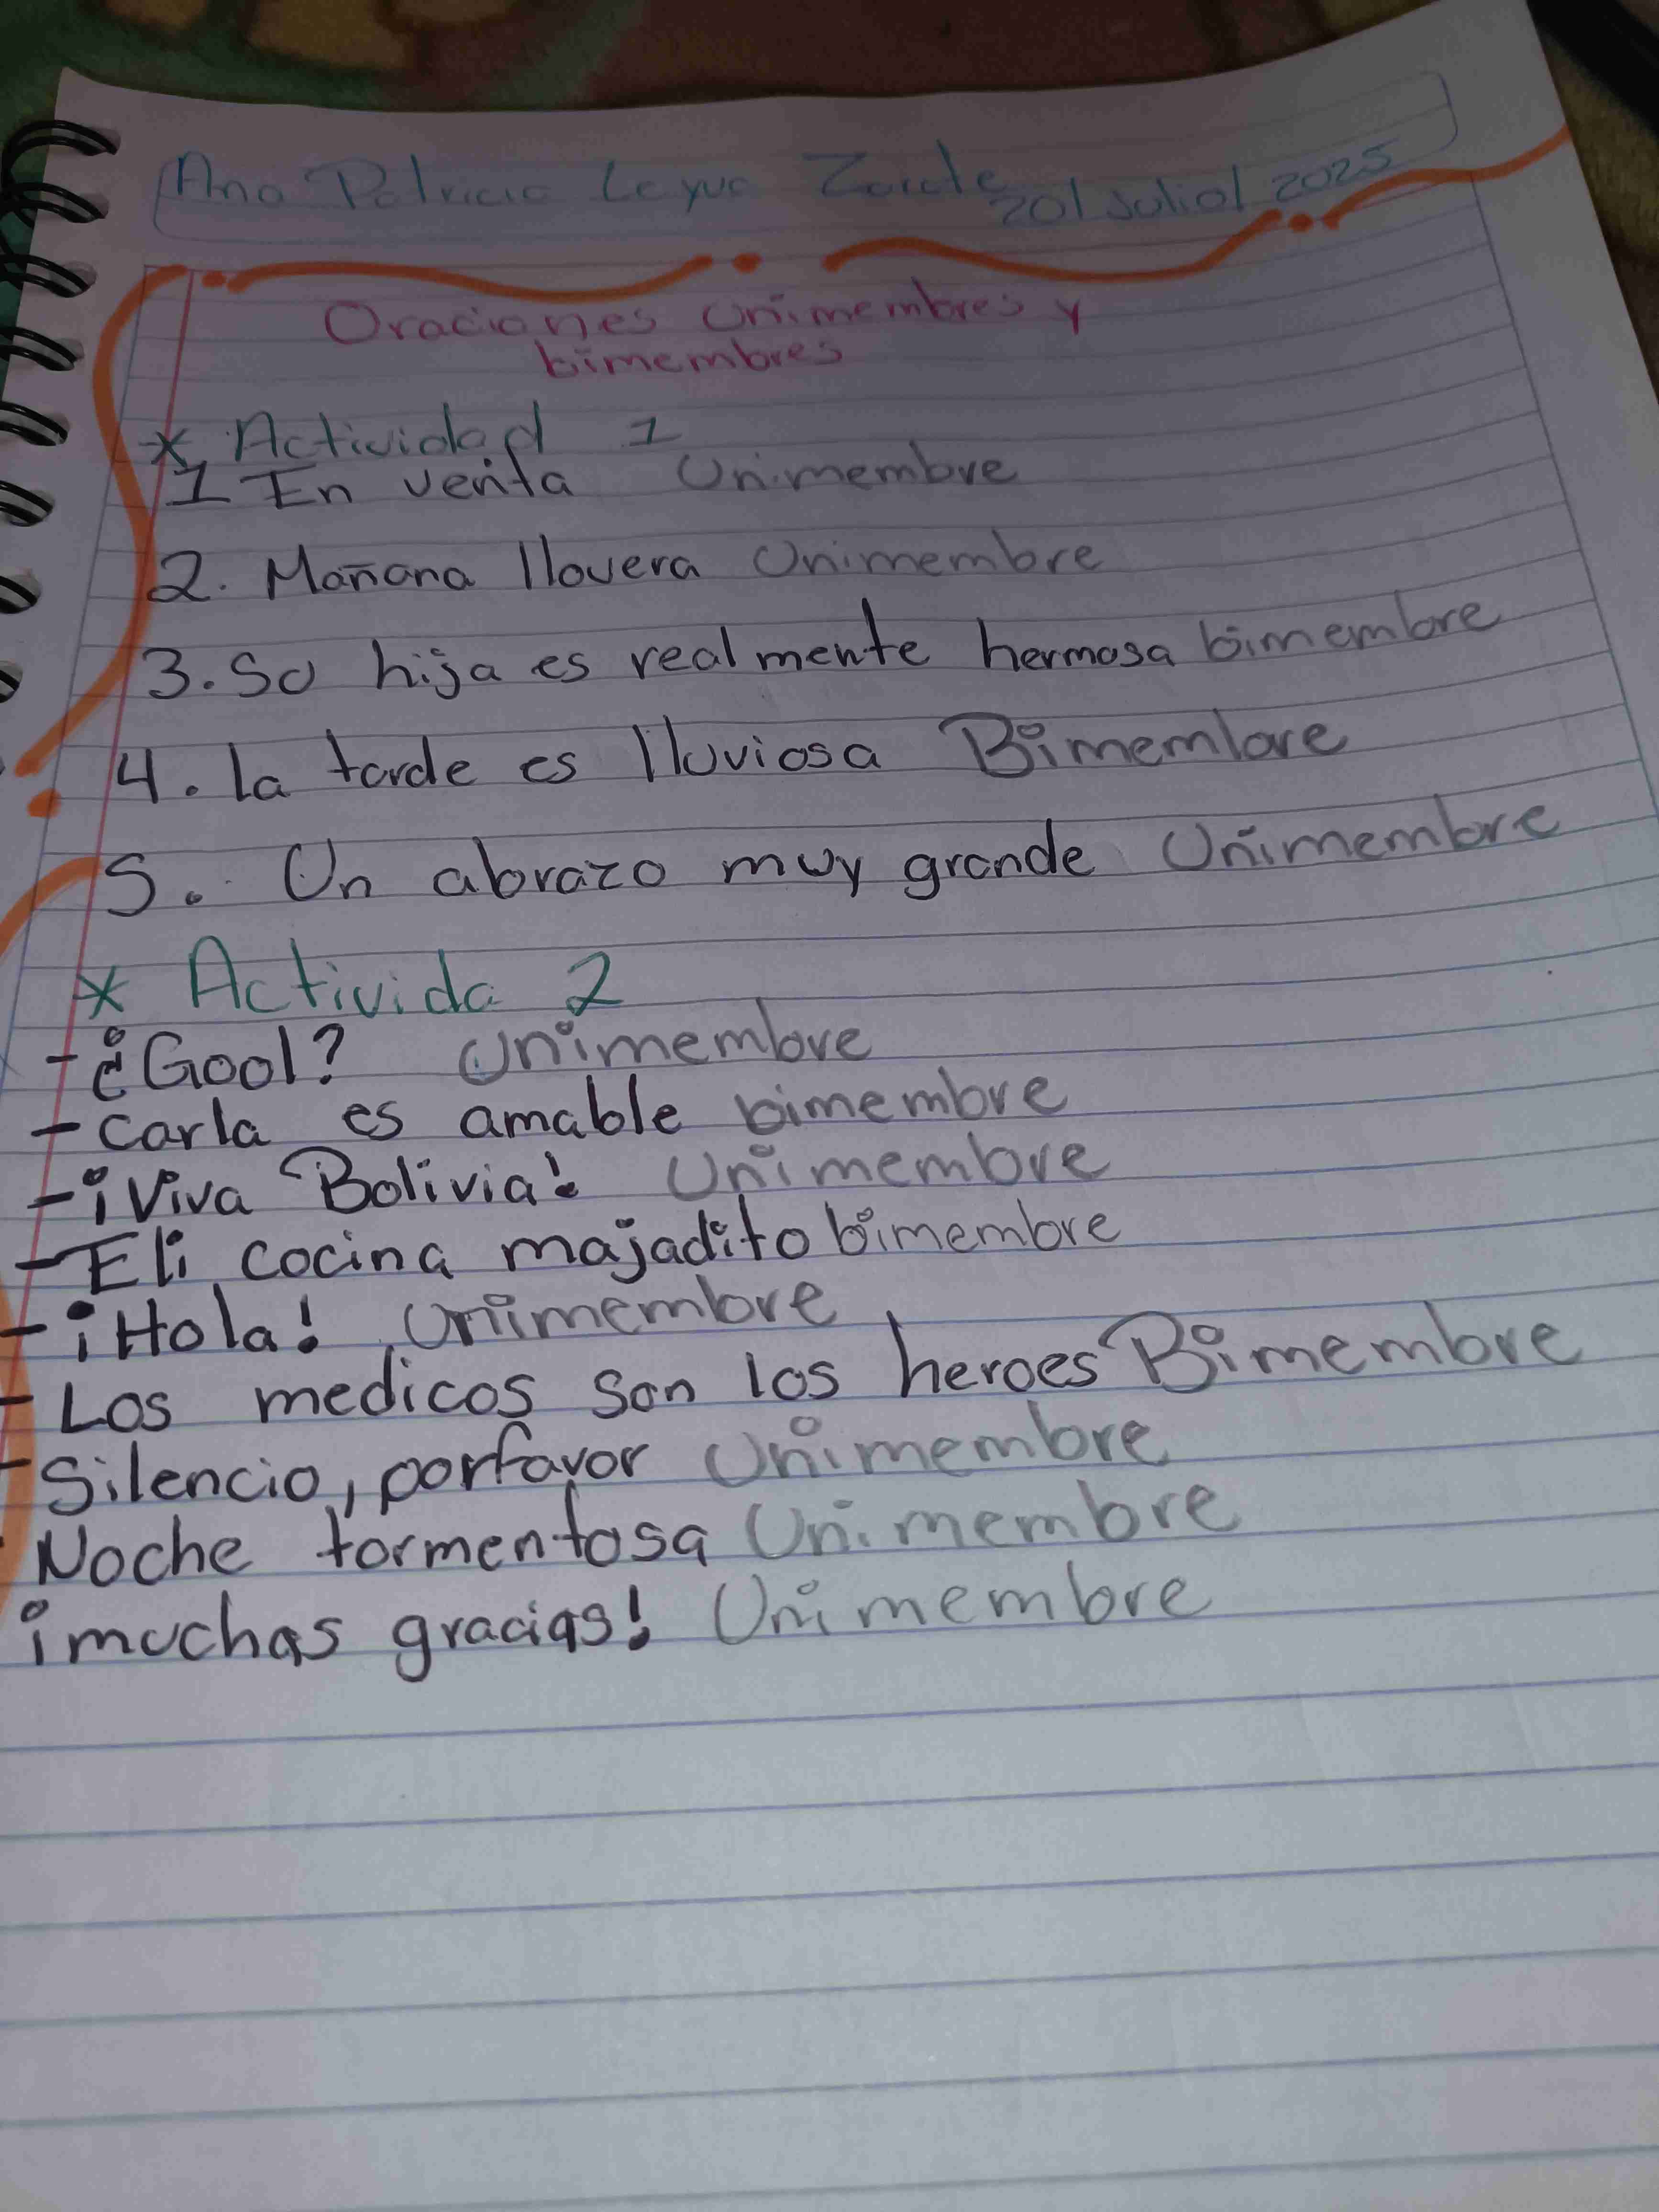 Ana Patricia Leyva Zarate 20/Julio/2025
Oraciones Unimembres y
bimembres
* Actividad 1
1 En venta Unimembre
2. Mañana llovera Unimembre
3. Su hija es realmente hermosa bimembre
4. la tarde es lluviosa Bimembre
5. Un abrazo muy grande Unimembre
* Activida 2
- ¿Gool? Unimembre
- carla es amable bimembre
- ¡Viva Bolivia! Unimembre
- Eli cocina majadito bimembre
- ¡Hola! Unimembre
- Los medicos son los heroes Bimembre
- Silencio, porfavor Unimembre
Noche tormentosa Unimembre
¡muchas gracias! Unimembre